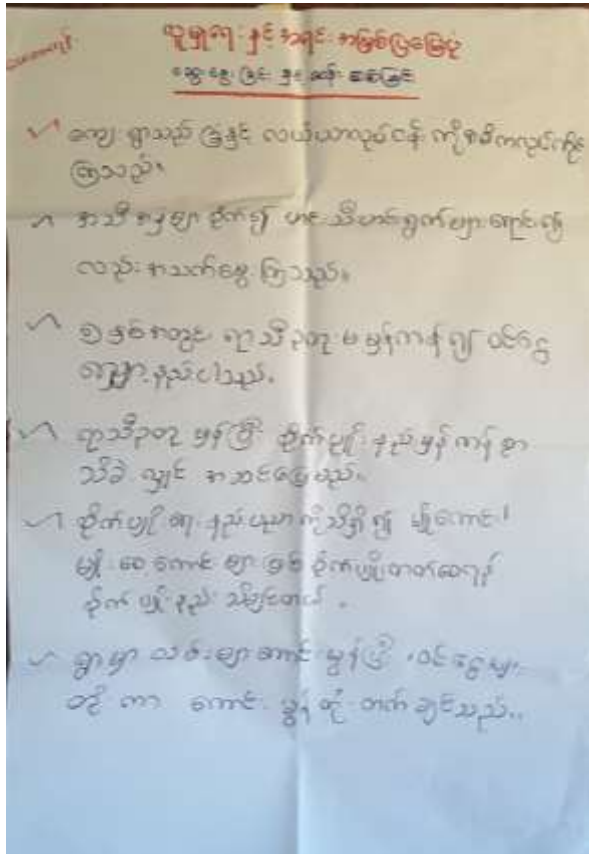 လူမှုရေး နှင့် အရင်း အမြစ်ပြမြေပုံ
ဆွေးနွေးခြင်း နှင့် ဆန်းစစ်ခြင်း
ကျေးရွာသည် ခြံနှင့် လယ်ယာလုပ်ငန်း ကိုအဓိကလုပ်ကိုင်
ကြသည်။
အသီးအနှံများ စိုက်၍ ဟင်းသီးဟင်းရွက်များ ရောင်း၍
လည်း အသက်မွေး ကြသည်။
၅ နှစ်အတွင်း ရာသီဥတု မမှန်ကန်၍ ဝင်ငွေ
လျော့နည်းပါသည်။
ရာသီဥတု မှန်ပြီး စိုက်ပျိုးနည်းမှန်ကန်စွာ
သိခဲ့လျှင် အဆင်ပြေမည်။
စိုက်ပျိုးရေး နည်းပညာကိုသိရှိ၍ မျိုးကောင်း၊
မျိုးစေ့ကောင်းများ ဖြင့် စိုက်ပျိုးတတ်စေရန်
စိုက်ပျိုးနည်း သိချင်တယ်။
ရွာမှာ လမ်းများကောင်းမွန်ပြီး ဝင်ငွေများ
တိုးကာ ကောင်းမွန်တိုးတက်ချင်သည်။